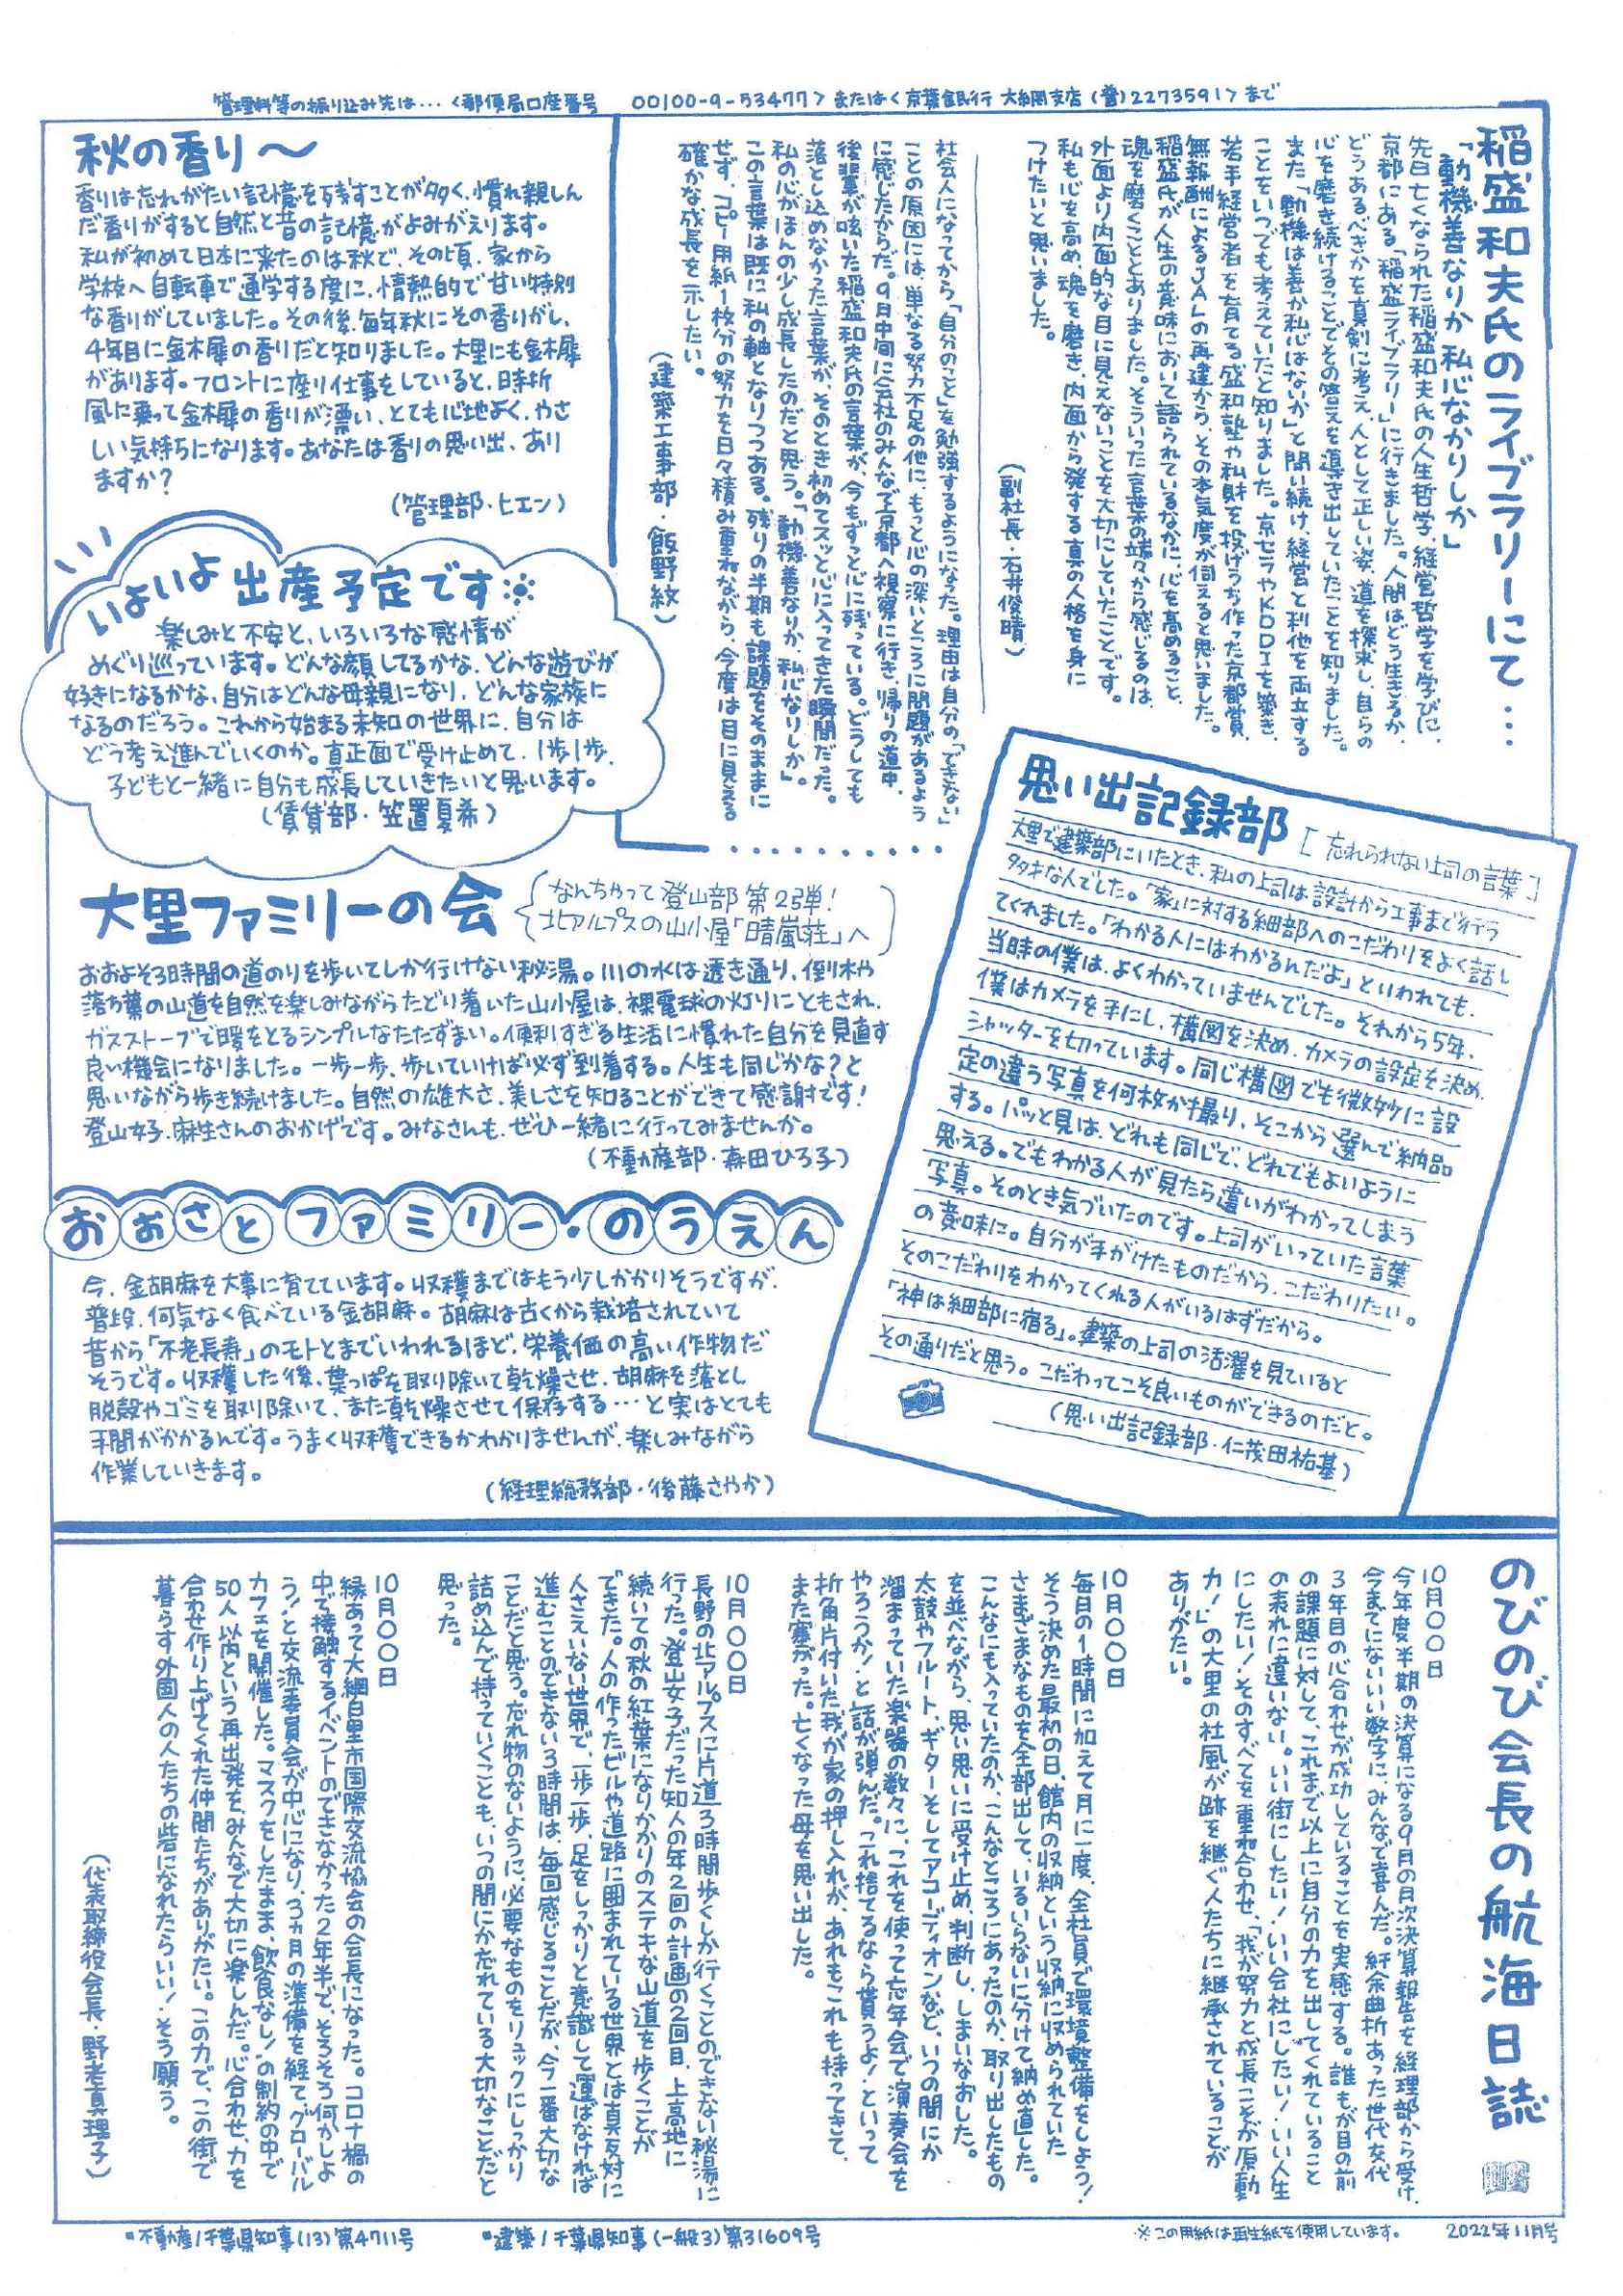 管理料等の振り込み先は…〈郵便局口座番号　00100-9-53477〉または〈京葉銀行 大網支店(普)2273591〉まで
稲盛和夫氏のライブラリーにて…
「動機善なりか 私心なかりしか」
先日亡くなられた稲盛和夫氏の人生哲学、経営哲学を学びに、
京都にある「稲盛ライブラリー」に行きました。人間はどう生きるか、
どうあるべきかを真剣に考え、人として正しい姿、道を探求し、自らの
心を磨き続けることでその答えを導き出していたことを知りました。
また「動機は善か私心はないか」と問い続け、経営と利他を両立する
ことをいつても考えていたと知りました。京セラやKDDIを築き、
若手経営者を育てる盛和塾や私財を投げうち作った京都賞、
無報酬によるJALの再建から、その本気度が伺えると思いました。
稲盛氏が人生の意味において語られているなかに、心を高めること、
魂を磨くこととありました。そういった言葉の端々から感じるのは、
外面より内面的な目に見えないことを大切にしていたことです。
私も心を高め、魂を磨き、内面から発する真の人格を身に
つけたいと思いました。
(副社長・石井俊晴)
社会人になってから「自分のこと」を勉強するようになった。理由は自分の「できない」
ことの原因には、単なる努力不足の他に、もっと心の深いところに問題があるよう
に感じたからだ。9月中旬に会社のみんなで京都へ視察に行き、帰りの道中、
後輩が呟いた稲盛和夫氏の言葉が、今もずっと心に残っている。どうしても
落とし込めなかった言葉が、そのとき初めてスッと心に入ってきた瞬間だった。
私の心がほんの少し成長したのだと思う。「動機善なりか、私心なりしか」。
この言葉は既に私の軸となりつつある。残りの半期も課題をそのままに
せず、コピー用紙1枚分の努力を日々積み重ねながら、今度は目に見える
確かな成長を示したい。
(建築工事部・飯野紋)
秋の香り〜
香りは忘れがたい記憶を残すことが多く、慣れ親しん
だ香りがすると自然と昔の記憶がよみがえります。
私が初めて日本に来たのは秋で、その頃、家から
学校へ自転車で通学する度に、情熱的で甘い特別
な香りがしていました。その後、毎年秋にその香りがし、
4年目に金木犀の香りだと知りました。大里にも金木犀
があります。フロントに座り仕事をしていると、時折
風に乗って金木犀の香りが漂い、とても心地よく、やさ
しい気持ちになります。あなたは香りの思い出、あり
ますか？
(管理部・ヒエン)
いよいよ出産予定です
楽しみと不安と、いろいろな感情が
めぐり巡っています。どんな顔してるかな、どんな遊びが
好きになるかな、自分はどんな母親になり、どんな家族に
なるのだろう。これから始まる未知の世界に、自分は
どう考え進んでいくのか。真正面で受け止めて、1歩1歩、
子どもと一緒に自分も成長していきたいと思います。
(賃貸部・笠置夏希)
思い出記録部［忘れられない上司の言葉］
大里で建築部にいたとき、私の上司は設計から工事まで行う
多才な人でした。「家」に対する細部へのこだわりをよく話し
てくれました。「わかる人にはわかるんだよ」といわれても、
当時の僕は、よくわかっていませんでした。それから5年、
僕はカメラを手にし、構図を決め、カメラの設定を決め、
シャッターを切っています。同じ構図でも微妙に設
定の違う写真を何枚か撮り、そこから選んで納品
する。パッと見は、どれも同じで、どれでもよいように
思える。でもわかる人が見たら違いがわかってしまう
写真。そのとき気づいたのです。上司がいっていた言葉
の意味に。自分が手がけたものだから、こだわりたい。
そのこだわりをわかってくれる人がいるはずだから。
「神は細部に宿る」。建築の上司の活躍を見ていると
その通りだと思う。こだわってこそ良いものができるのだと。
(思い出記録部・仁茂田祐基)
大里ファミリーの会
なんちゃって登山部 第2弾！
北アルプスの山小屋「晴嵐荘」へ
おおよそ3時間の道のりを歩いてしか行けない秘湯。川の水は透き通り、倒木や
落ち葉の山道を自然を楽しみながらたどり着いた山小屋は、裸電球の灯りにともされ、
ガスストーブで暖をとるシンプルなたたずまい。便利すぎる生活に慣れた自分を見直す
良い機会になりました。一歩一歩、歩いていけば必ず到着する。人生も同じかな？と
思いながら歩き続けました。自然の雄大さ、美しさを知ることができて感謝です！
登山女子、麻生さんのおかげです。みなさんも、ぜひ一緒に行ってみませんか。
(不動産部・森田ひろ子)
おおさとファミリー・のうえん
今、金胡麻を大事に育てています。収穫まではもう少しかかりそうですが、
普段、何気なく食べている金胡麻。胡麻は古くから栽培されていて
昔から「不老長寿」のモトとまでいわれるほど、栄養価の高い作物だ
そうです。収穫した後、葉っぱを取り除いて乾燥させ、胡麻を落とし
脱穀やゴミを取り除いて、また乾燥させて保存する…と実はとても
手間がかかるんです。うまく収穫できるかわかりませんが、楽しみながら
作業していきます。
(経理総務部・後藤さやか)
のびのび会長の航海日誌
10月○○日
今年度半期の決算になる9月の月次決算報告を経理部から受け、
今までにないいい数字に、みんなで喜んだ。紆余曲折あった世代交代
3年目の心合わせが成功していることを実感する。誰もが目の前
の課題に対して、これまで以上に自分の力を出してくれていること
の表れに違いない。いい街にしたい！いい会社にしたい！いい人生
にしたい！そのすべてを重ね合わせ、「我が努力と成長こそが原動
力！」の大里の社風が跡を継ぐ人たちに継承されていることが
ありがたい。
10月○○日
毎日の1時間に加えて月に一度、全社員で環境整備をしよう！
そう決めた最初の日、館内の収納という収納に収められていた
さまざまなものを全部出して、いるいらないに分けて納め直した。
こんなにも入っていたのか、こんなところにあったのか、取り出したもの
を並べながら、思い思いに受け止め、判断し、しまいなおした。
太鼓やフルート、ギターそしてアコーディオンなど、いつの間にか
溜まっていた楽器の数々に、これを使って忘年会で演奏会を
やろうか！と話が弾んだ。これ捨てるなら貰うよ！といって
折角片付いた我が家の押し入れが、あれもこれも持ってきて、
また塞がった。亡くなった母を思い出した。
10月○○日
長野の北アルプスに片道3時間歩くしか行くことのできない秘湯に
行った。登山女子だった知人の年2回の計画の2回目、上高地に
続いての秋の紅葉になりかかりのステキな山道を歩くことが
できた。人の作ったビルや道路に囲まれている世界とは真反対に
人さえいない世界で、一歩一歩、足をしっかりと意識して運ばなければ
進むことのできない3時間は、毎回感じることだが、今一番大切な
ことだと思う。忘れ物のないように、必要なものをリュックにしっかり
詰め込んで持っていくことも、いつの間にか忘れている大切なことだと
思った。
10月○○日
縁あって大網白里市国際交流協会の会長になった。コロナ禍の
中で接触するイベントのできなかった2年半で、そろそろ何かしよ
う！と交流委員会が中心になり、3カ月の準備を経て、グローバル
カフェを開催した。マスクをしたまま、飲食なし！の制約の中で
50人以内という再出発を、みんなで大切に楽しんだ。心合わせ、力を
合わせ作り上げてくれた仲間たちがありがたい。この力で、この街で
暮らす外国人の人たちの砦になれたらいい！そう願う。
(代表取締役会長・野老真理子)
■不動産/千葉県知事(13)第4711号　■建築/千葉県知事(一般3)第31609号　※この用紙は再生紙を使用しています。　2022年11月号